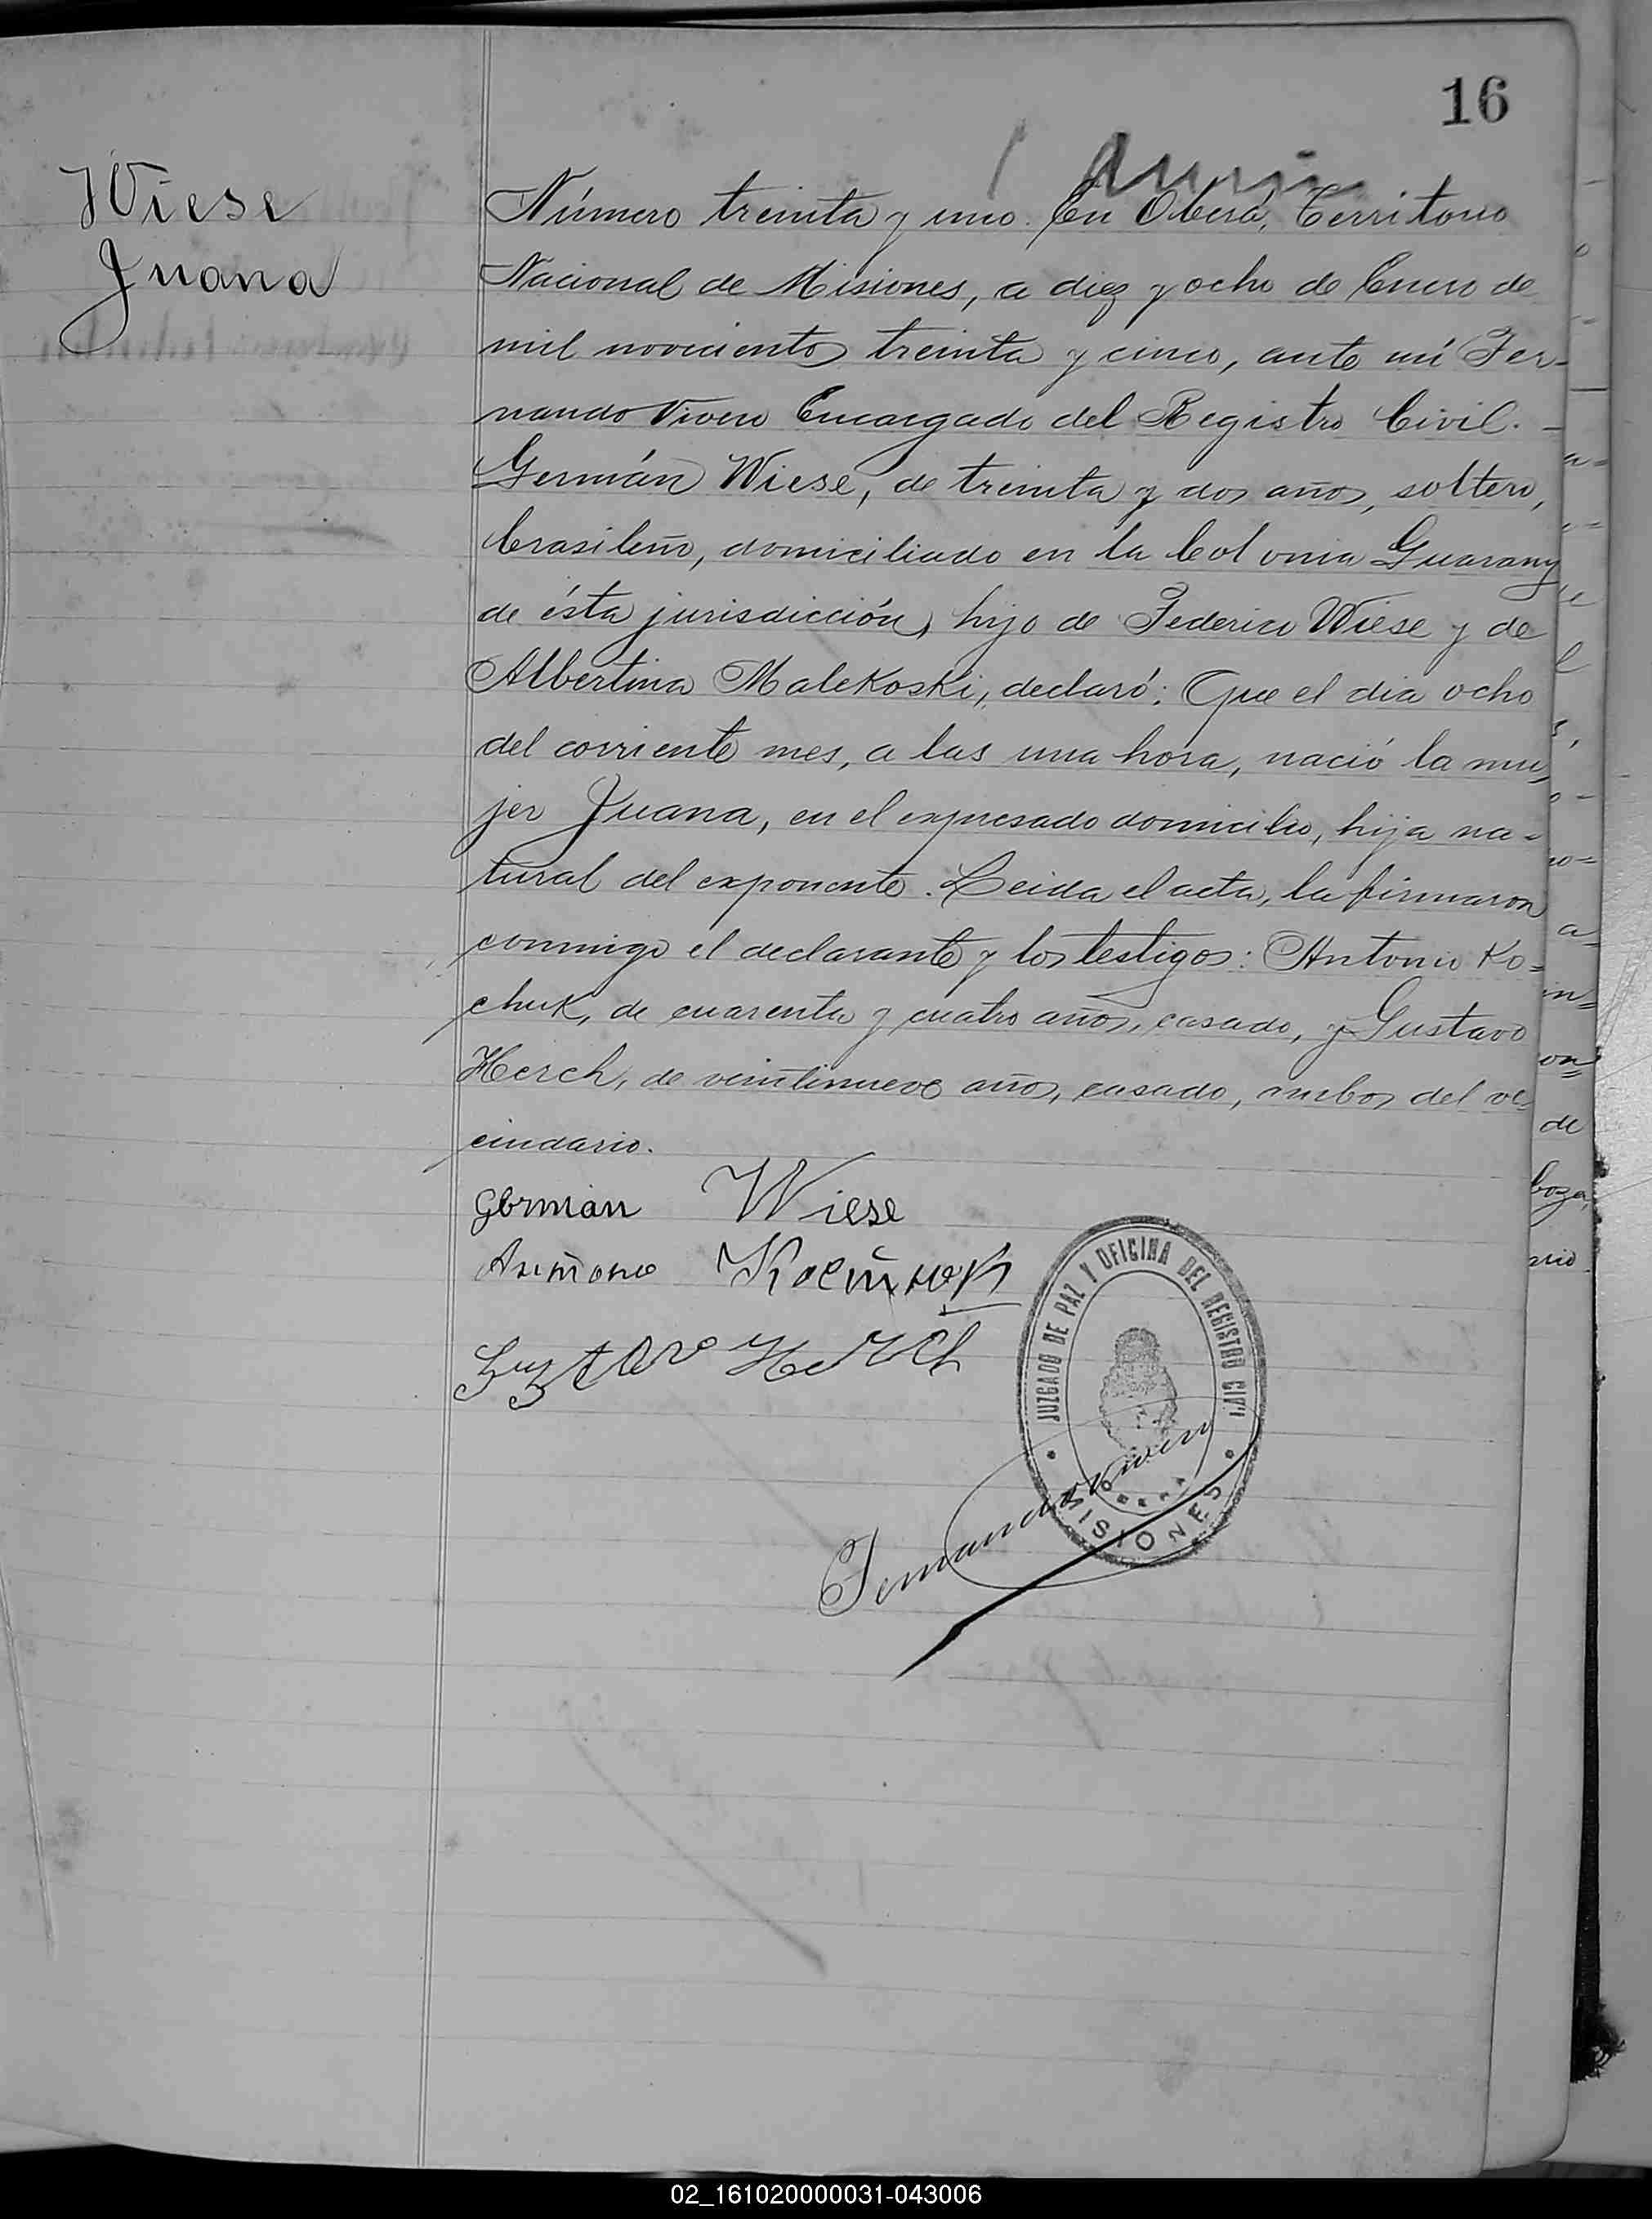 16
Wiese
Juana
Número treinta y uno. En Oberá, Territorio
Nacional de Misiones, a diez y ocho de Enero de
mil noveciento treinta y cinco, ante mí Fer-
nando Vivero Encargado del Registro Civil. -
Germán Wiese, de treinta y dos años, soltero,
brasileño, domiciliado en la Colonia Guarany
de ésta jurisdicción, hijo de Federico Wiese y de
Albertina Malekoski, declaró: Que el dia ocho
del corriente mes, a las una hora, nació la mu-
jer Juana, en el expresado domicilio, hija na=
tural del exponente. Leida el acta, la firmaron
conmigo el declarante y los testigos: Antonio Ko=
chuk, de cuarenta y cuatro años, casado, y Gustavo
Herch, de veintinueve años, casado, ambos del ve-
cindario.
German Wiese
Gustavo Herch
JUZGADO DE PAZ Y OFICINA DEL REGISTRO CIVI
MISIONES
Fernando Vivero
02_161020000031-043006